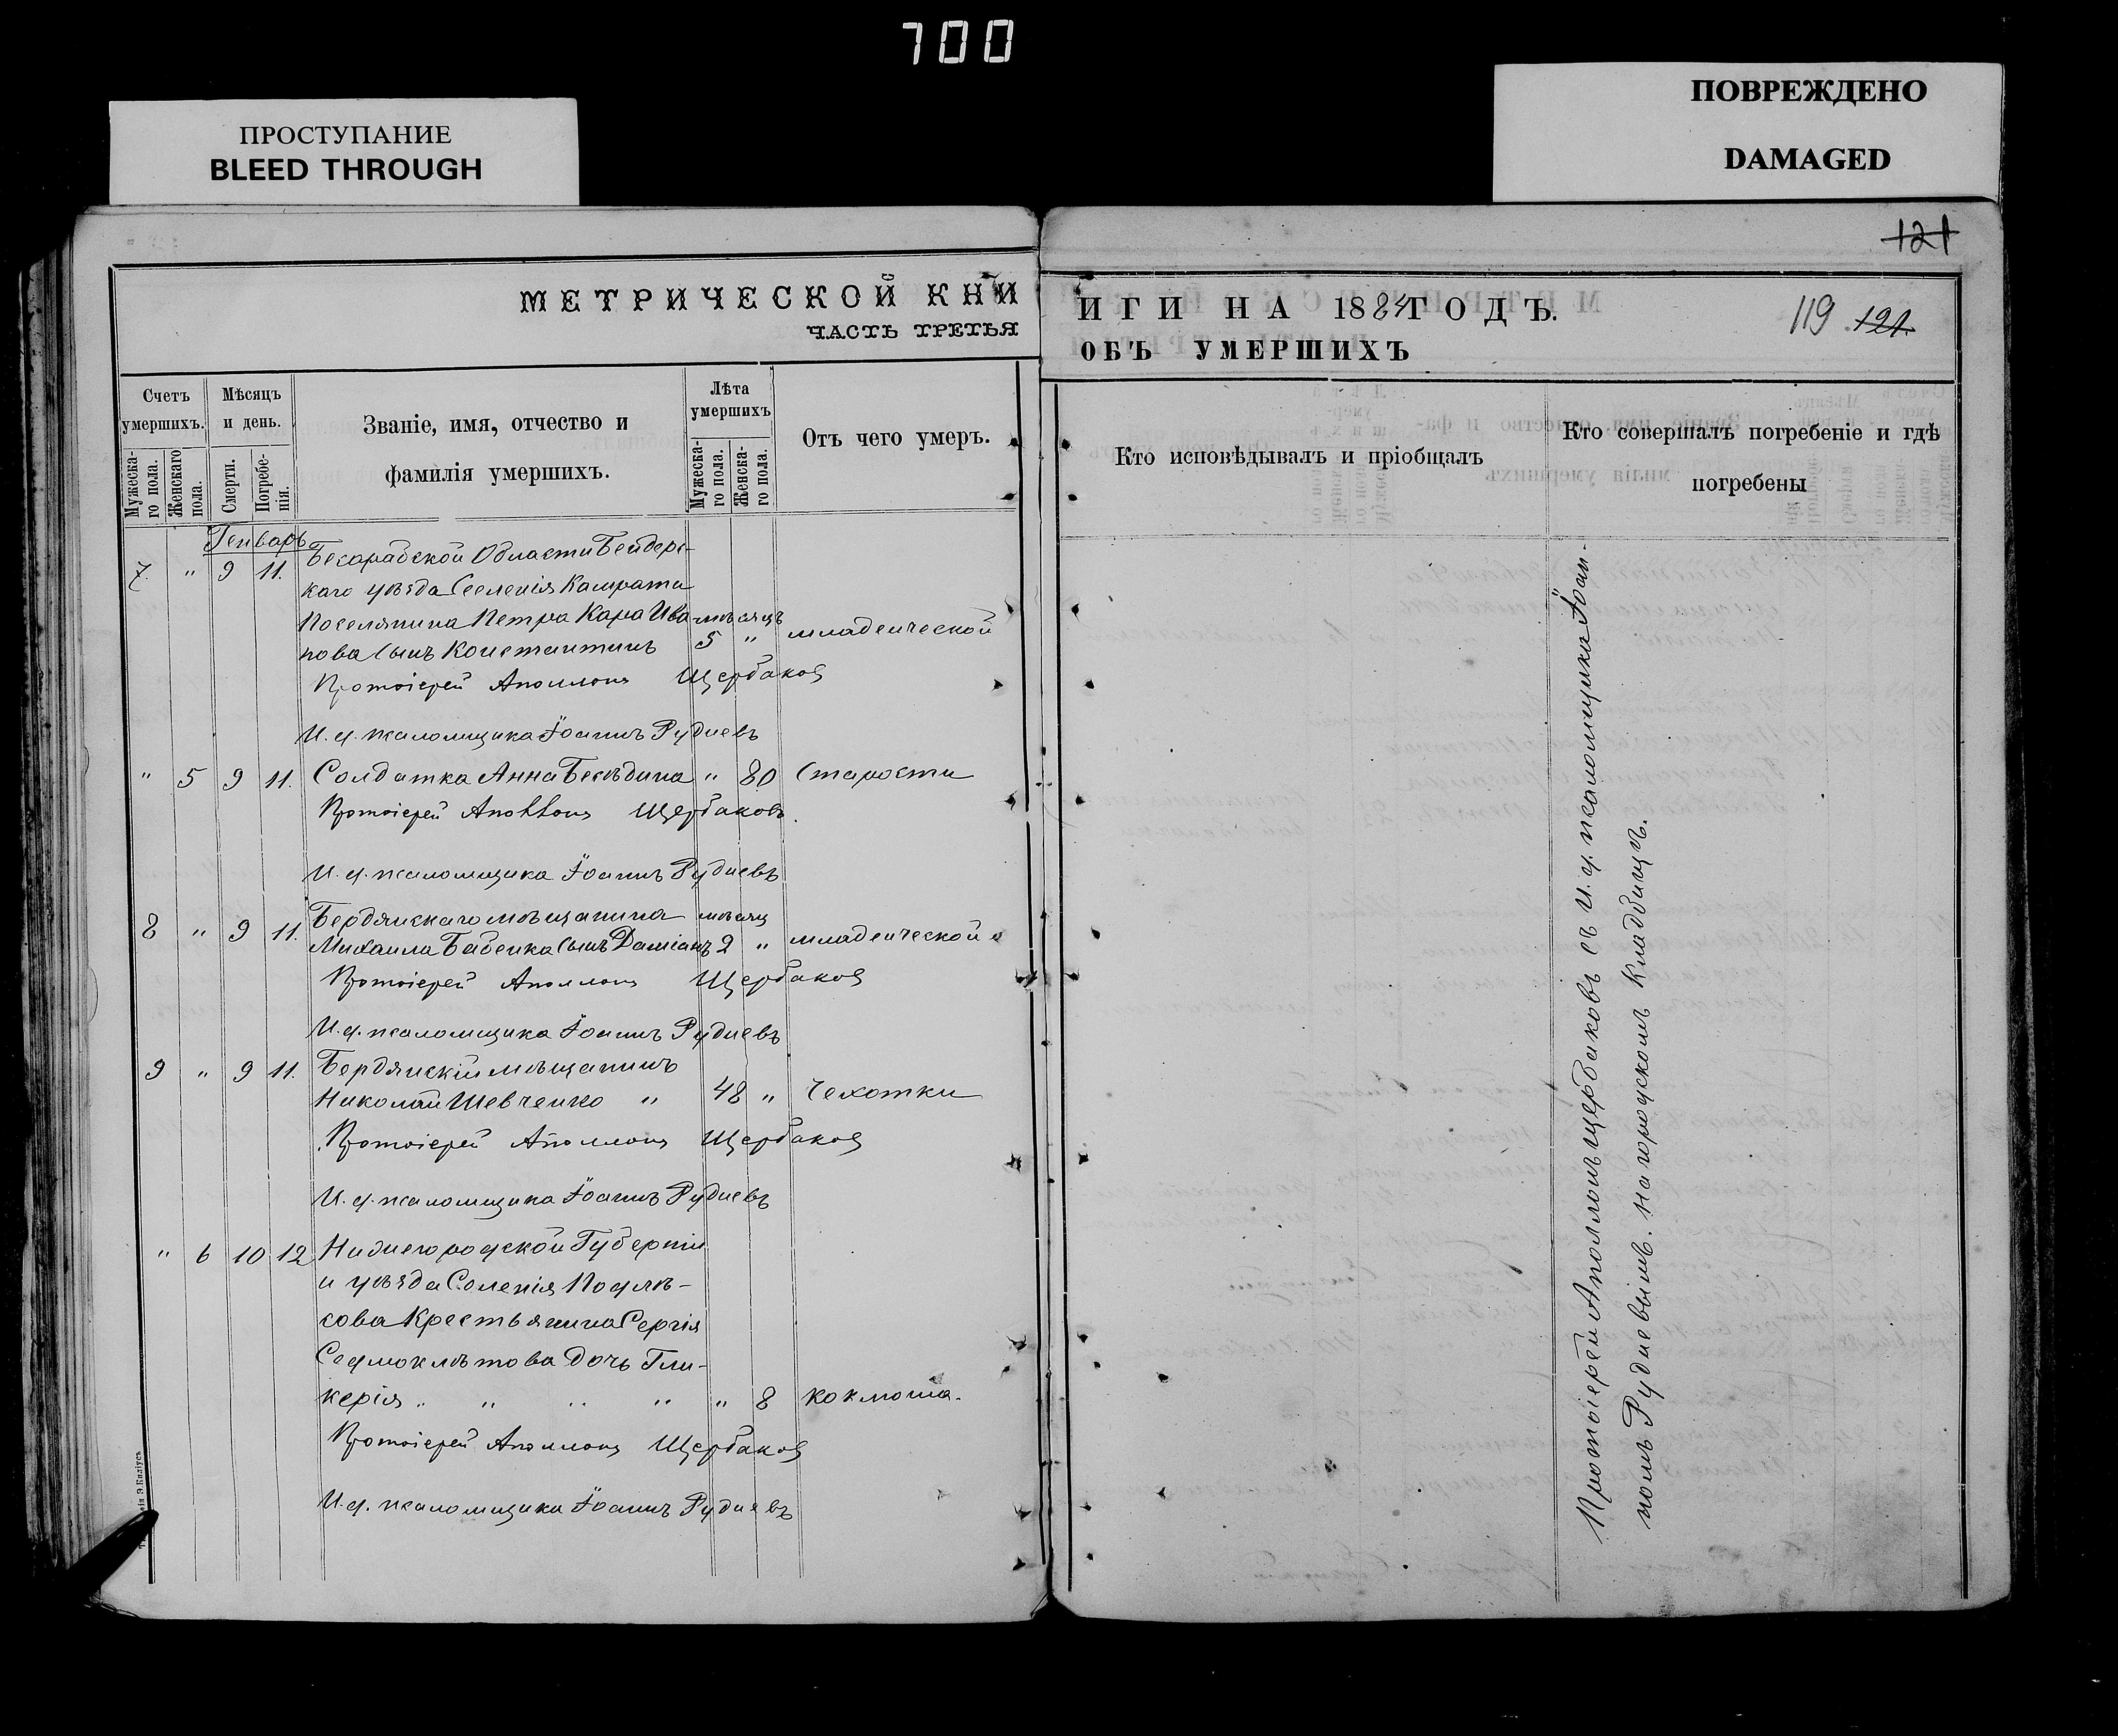 700
ПРОСТУПАНИЕ
BLEED THROUGH
ПОВРЕЖДЕНО
DAMAGED
121
МЕТРИЧЕСКОЙ КНИ
ЧАСТЬ ТРЕТЬЯ
ИГИ НА 1884 ГОДЪ.
119 121.
ОБЪ УМЕРШИХЪ
Счетъ умершихъ.
Мужеска-го пола.
Женскаго пола.
Мѣсяцъ и день.
Смерти.
Погребе-нія.
Званіе, имя, отчество и
фамилія умершихъ.
Лѣта умершихъ
Мужеска-го пола.
Женска-го пола.
Отъ чего умеръ.
Кто исповѣдывалъ и пріобщалъ
Кто совершалъ погребеніе и гдѣ
погребены
Генварь
7. " 9 11. Бесарабской Области Бендерс-
каго уѣзда Селенія Камрата
Поселянина Петра Кара Ива- мѣсяцъ
нова сынъ Константинъ 5 " младенческой
Протоіерей Аполлонъ Щербаковъ
И. д. псаломщика Іоаннъ Рудневъ
" 5 9 11. Солдатка Анна Бесѣдина " 80 Старости
Протоіерей Аполлонъ Щербаковъ.
И. д. псаломщика Іоаннъ Рудневъ
8 " 9 11. Бердянскаго мѣщанина мѣсяц
Михаила Бабенка сынъ Даміанъ 2 " младенческой
Протоіерей Аполлонъ Щербаковъ
И. д. псаломщика Іоаннъ Рудневъ
9 " 9 11. Бердянскій мѣщанинъ
Николай Шевченко " 48 " Чехотки
Протоіерей Аполлонъ Щербаковъ
И. д. псаломщика Іоаннъ Рудневъ
" 6 10 12 Нижнегородской Губерніи
и уѣзда Селенія Подлѣ-
сова Крестьянина Сергія
Седмоклѣтова дочь Гли-
керія " " " " " 8 коклюша.
Протоіерей Аполлонъ Щербаковъ
И. д. псаломщика Іоаннъ Рудневъ
Протоіерей Аполлонъ Щербаковъ съ И. д. псаломщика Іоан-
номъ Рудневымъ. На городскомъ Кладбищѣ.